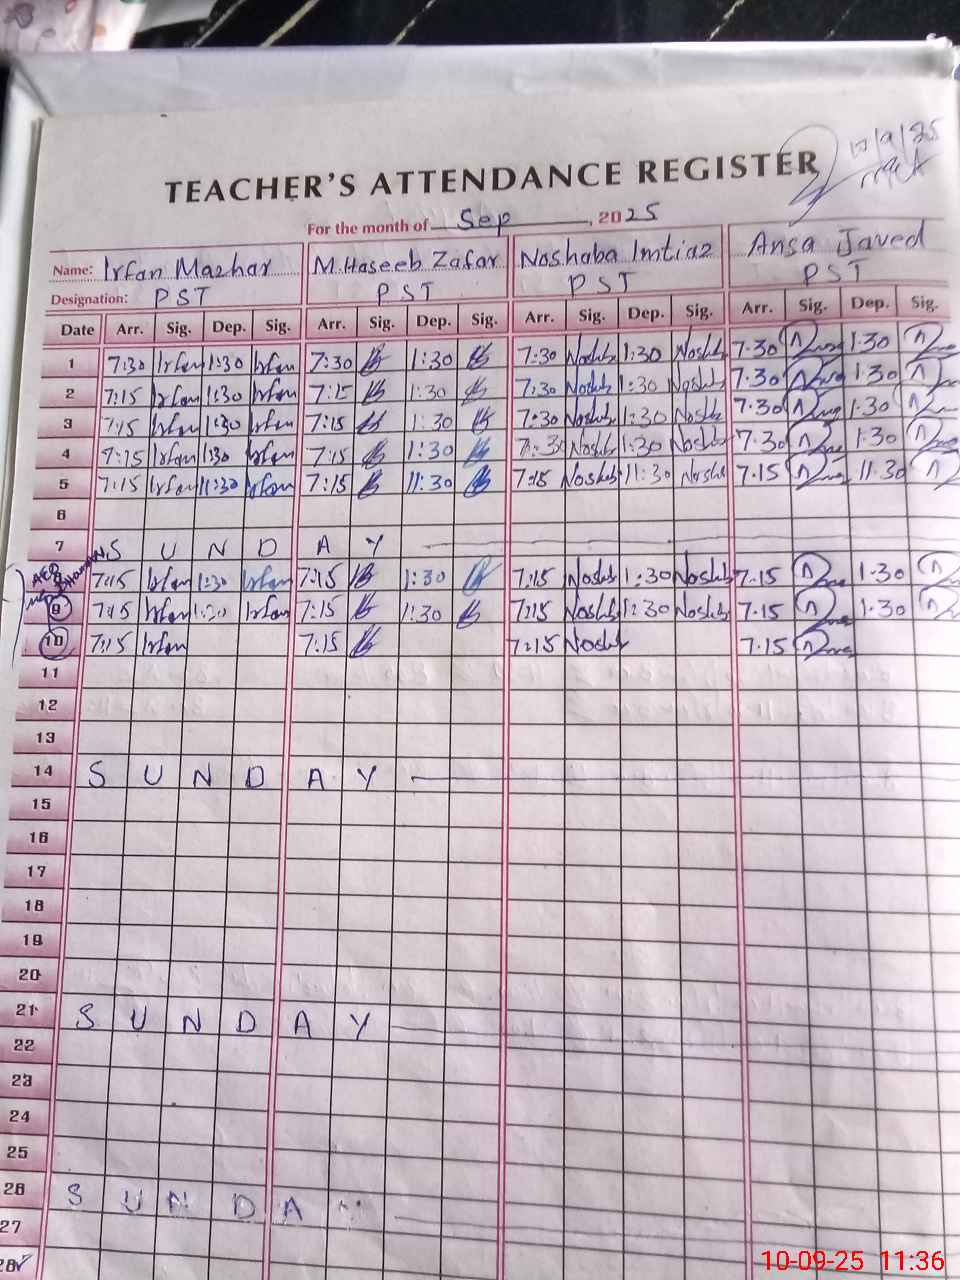 10/9/25
TEACHER'S ATTENDANCE REGISTER
For the month of Sep, 2025
Name: Irfan Mazhar M. Haseeb Zafar Noshaba Imtiaz Ansa Javed
Designation: PST PST PST PST
Date Arr. Sig. Dep. Sig. Arr. Sig. Dep. Sig. Arr. Sig. Dep. Sig. Arr. Sig. Dep. Sig.
1 7:30 Irfan 1:30 Irfan 7:30 1:30 7:30 Noshab 1:30 Noshab 7.30 1.30
2 7:15 Irfan 1:30 Irfan 7:15 1:30 7:30 Noshab 1:30 Noshab 7.30 1.30
3 7:15 Irfan 1:30 Irfan 7:15 1:30 7:30 Noshab 1:30 Noshab 7.30 1.30
4 7:15 Irfan 1:30 Irfan 7:15 1:30 7:30 Noshab 1:30 Noshab 7.30 1.30
5 7:15 Irfan 11:30 Irfan 7:15 11:30 7:15 Noshab 11:30 Noshab 7.15 11.30
6
7 S U N D A Y
8 7:15 Irfan 1:30 Irfan 7:15 1:30 7:15 Noshab 1:30 Noshab 7.15 1.30
9 7:15 Irfan 1:30 Irfan 7:15 1:30 7:15 Noshab 1:30 Noshab 7.15 1.30
10 7:15 Irfan 7:15 7:15 Noshab 7.15
11
12
13
14 S U N D A Y
15
16
17
18
19
20
21 S U N D A Y
22
23
24
25
26 S U N D A Y
27
28
10-09-25 11:36